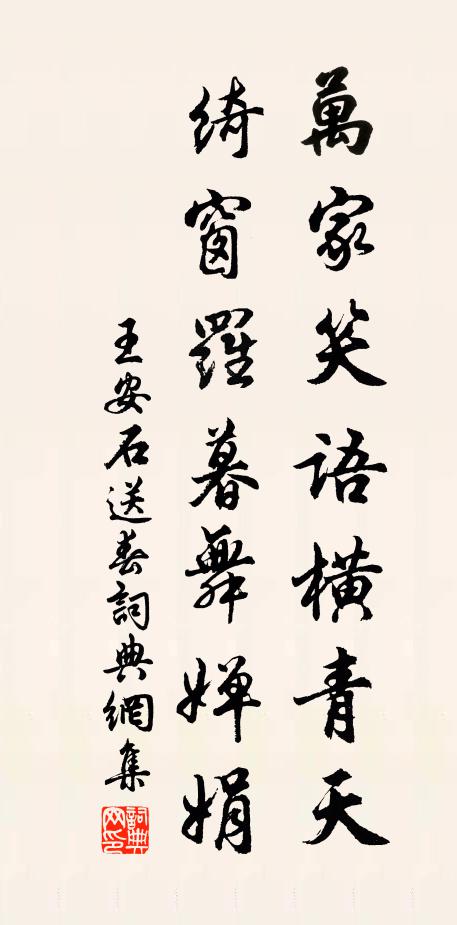 萬家笑語橫青天
綺窗羅暮舞嬋娟
王安石送春詞典網集
詞典網印